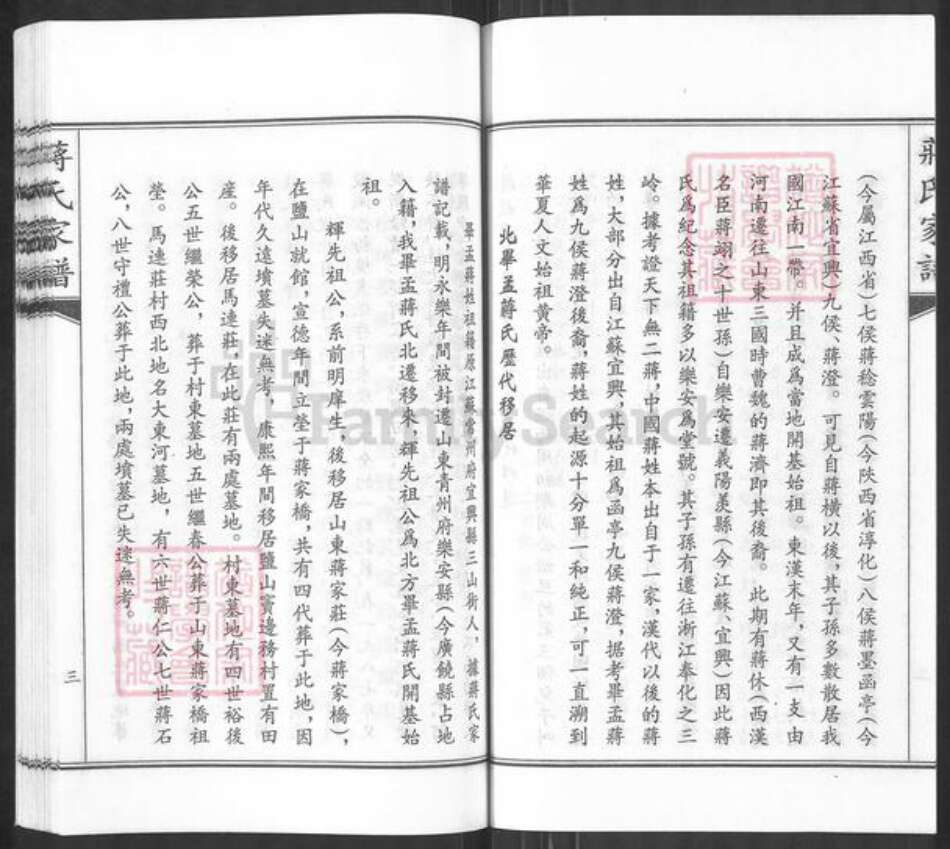 蔣氏家譜
(今屬江西省)七侯蔣稔雲陽(今陝西省淳化)八侯蔣墨函亭(今
江蘇省宜興)九侯、蔣澄。可見自蔣橫以後,其子孫多數散居我
國江南一帶。并且成爲當地開基始祖。東漢末年,又有一支由
河南遷往山東三國時曹魏的蔣濟即其後裔。此期有蔣休(西漢
名臣蔣詡之十世孫)自樂安遷義陽羨縣(今江蘇、宜興)因此蔣
氏爲紀念其祖籍多以樂安爲堂號。其子孫有遷往淅江奉化之三
岭。據考證天下無二蔣,中國蔣姓本出自于一家,漢代以後的蔣
姓,大部分出自江蘇宜興,其始祖爲函亭九侯蔣澄,據考畢孟蔣
姓爲九侯蔣澄後裔,蔣姓的起源十分單一和純正,可一直溯到
華夏人文始祖黄帝。
北畢孟蔣氏歷代移居
畢孟蔣姓祖籍原江蘇常州府宜興縣三山街人,據蔣氏家
譜記載,明永樂年間被封遷山東青州府樂安縣(今廣饒縣占地
入籍,我畢孟蔣氏北遷移來,輝先祖公爲北方畢孟蔣氏開基始
祖。
輝先祖公,系前明庠生,後移居山東蔣家莊(今蔣家橋),
在鹽山就館,宣德年間立塋于蔣家橋,共有四代葬于此地,因
年代久遠墳墓失迷無考,康熙年間移居鹽山竇邊務村置有田
産。後移居馬連莊,在此莊有兩處墓地。村東墓地有四世裕後
公五世繼榮公,葬于村東墓地五世繼春公葬于山東蔣家橋祖
塋。馬連莊村西北地名大東河墓地,有六世蔣仁公七世蔣石
公,八世守禮公葬于此地,兩處墳墓已失迷無考。
蔣氏家譜
三
FamilySearch